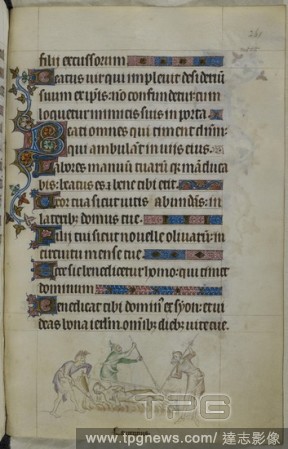 261
filii excussorum
Beatus vir qui impleuit desideriū
suum ex ip̄is: nō confundetur: cum
loquetur inimicis suis in porta.
Beati omnes qui timent dn̄m:
qui ambulāt in uijs eius.
Labores manuū tuarū q̄ māduca
bis: beatus es ⁊ bene tibi erit.
Uxor tua sicut uitis abundās: in
laterib; domus tue.
Filij tui sicut nouelle oliuarū: in
circuitu mense tue.
Ecce sic benedicetur homo: qui timet
dominum
Benedicat tibi domin' ex syon: et ui
deas bona ierlm̄ omīb; dieb; uite tue.
TPG
www.tpgnews.com / 達志影像